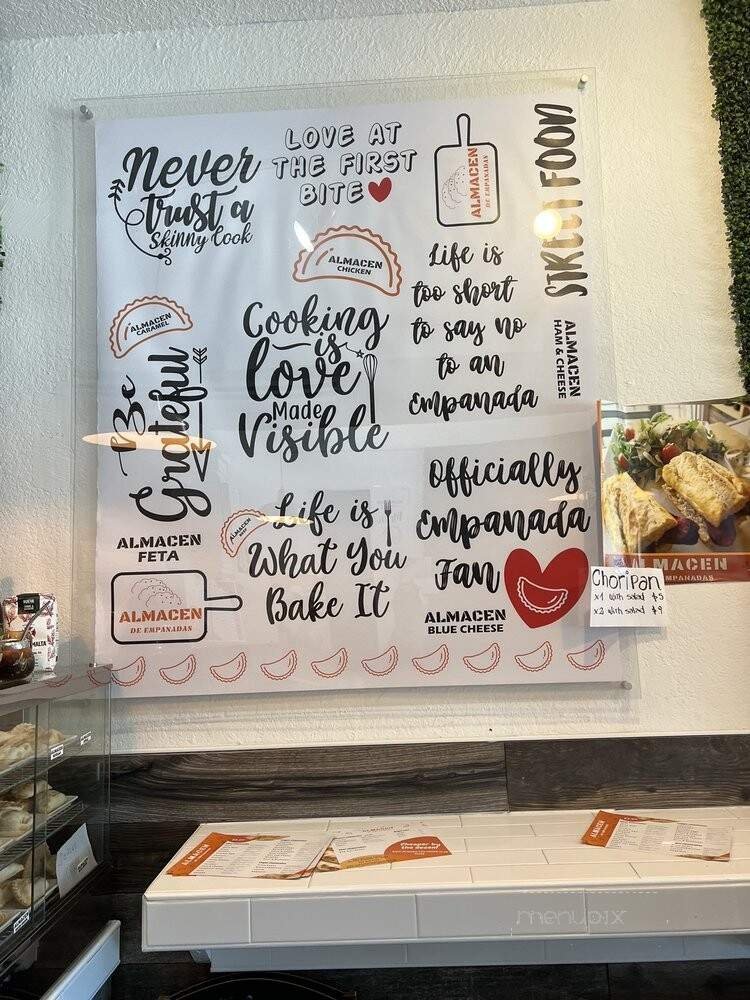 Never
trust a
Skinny Cook
LOVE AT
THE FIRST
BITE
ALMACEN
DE EMPANADAS
STREET FOOD
ALMACEN
CHICKEN
Life is
too short
to say no
to an
Empanada
ALMACEN
CARAMEL
Cooking
is
love
Made
Visible
ALMACEN
HAM & CHEESE
Be
Grateful
Officially
Empanada
Fan
Life is
What You
Bake It
ALMACEN
FETA
ALMACEN
DE EMPANADAS
ALMACEN
BLUE CHEESE
ALMACEN
EMPANADAS
Choripan
x1 with salad $5
x2 with salad $9
ALMACEN
Cheaper by
the dozen!
ALMACEN
menupix